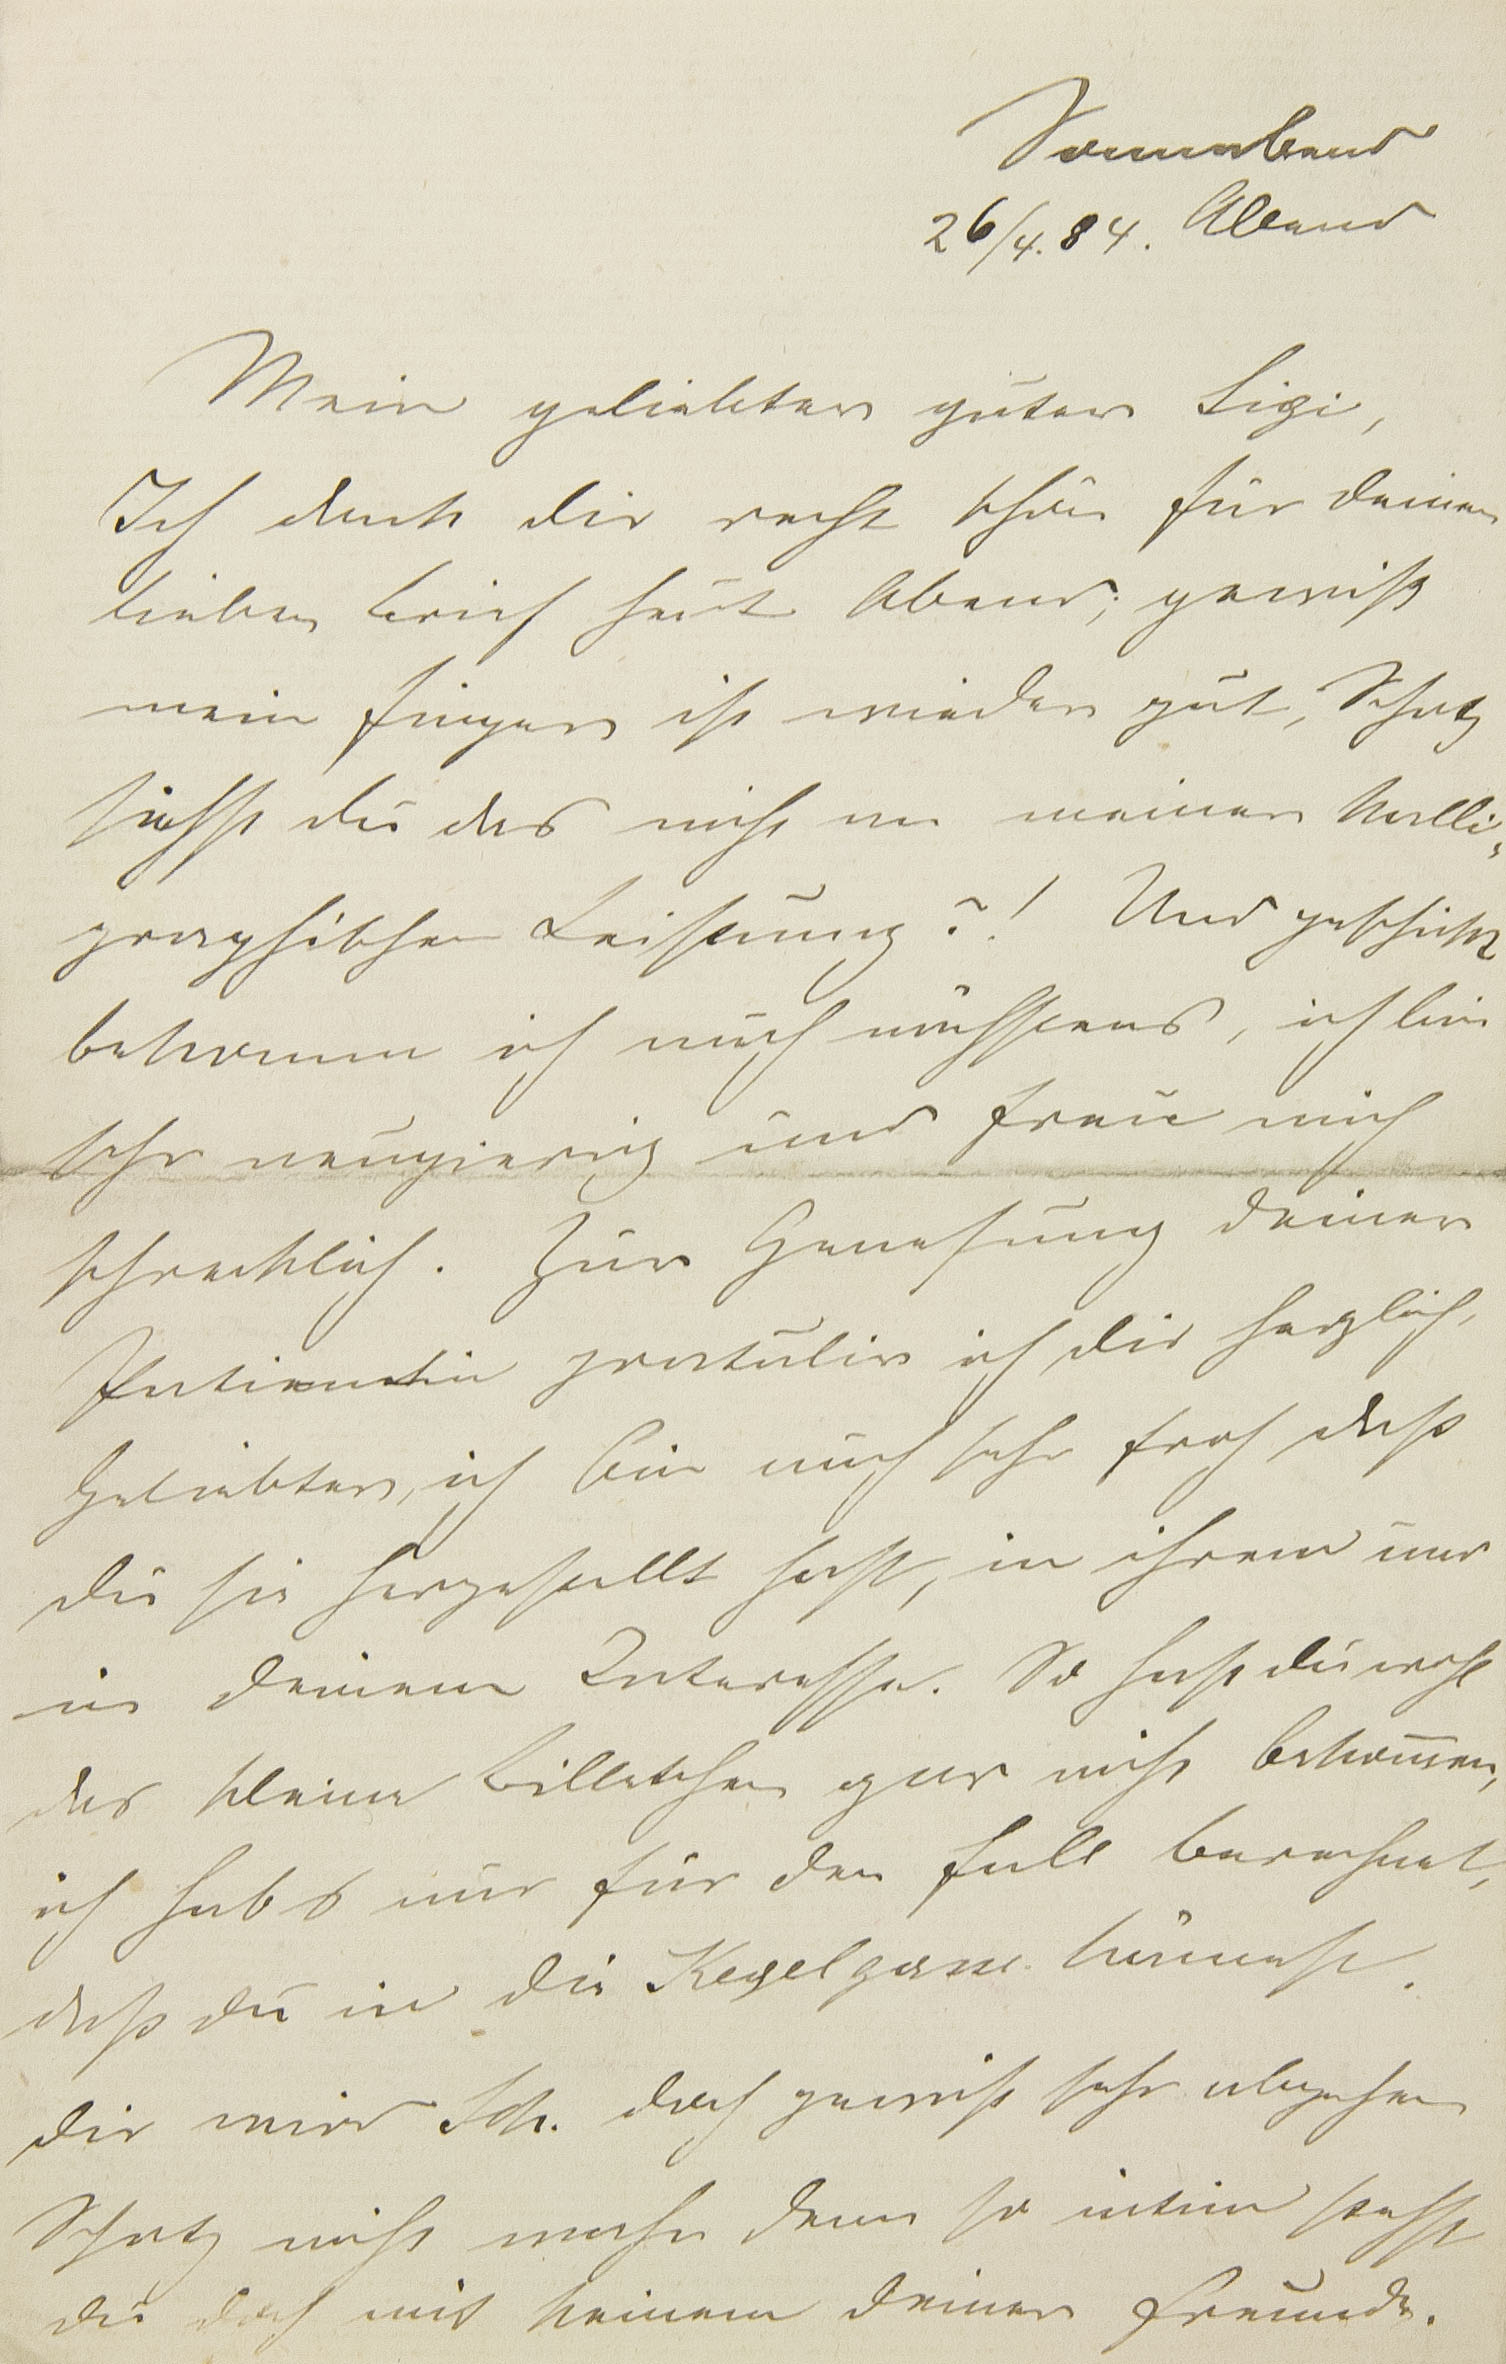 Sonnabend
26/4. 84. Abend
Mein geliebter guter Sigi,
Ich dank dir recht schön für deinen
lieben Brief heut Abend; gewiß
mein Finger ist wieder gut, Schatz
siehst du das nicht an meiner kalli-
graphischen Leistung?! Und geschickt
bekomm ich auch nächstens, ich bin
sehr neugierig und freu mich
schrecklich. Zur Genesung deiner
Patientin gratulir ich dir herzlich,
Geliebter, ich bin auch sehr froh daß
du sie hergestellt hast, in ihrem und
in deinem Interesse. So hast du wohl
das kleine Billetchen gar nicht bekom̄en,
ich habs nur für den Fall berechnet,
daß du in die Kegelgasse kämest.
Dir wird Sch. doch gewiß sehr abgehen
Schatz nicht wahr denn so intim stehst
du doch mit keinem deiner Freunde.